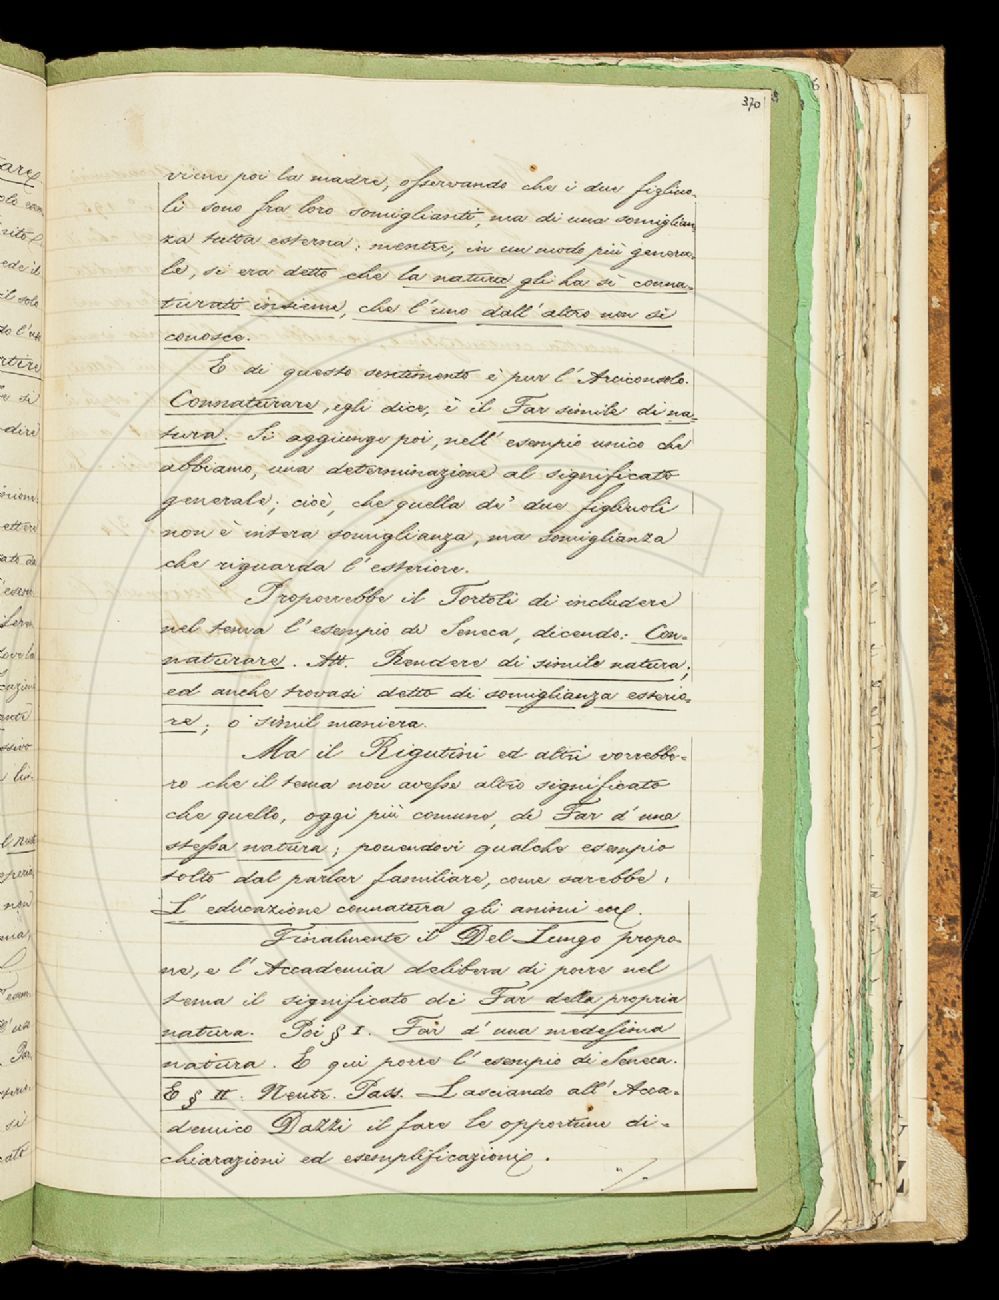 370
viene poi la madre, osservando che i due figliuo-
li sono fra loro somiglianti, ma di una somiglian
za tutta esterna; mentre, in un modo più genera-
le, si era detto che la natura gli ha sì conna-
turati insieme, che l'uno dall'altro non si
conosce.
E di questo sentimento è pur l'Arciconsolo.
Connaturare, egli dice, è il Far simile di na-
tura. Si aggiunge poi, nell'esempio unico che
abbiamo, una determinazione al significato
generale; cioè, che quella de' due figliuoli
non è intera somiglianza, ma somiglianza
che riguarda l'esteriore.
Proporrebbe il Tortoli di includere
nel tema l'esempio di Seneca, dicendo: Con-
naturare. Att. Rendere di simile natura;
ed anche trovasi detto di somiglianza esterio-
re; o simil maniera.
Ma il Rigutini ed altri vorrebbe-
ro che il tema non avesse altro significato
che quello, oggi più comune, di Far d'una
stessa natura; ponendovi qualche esempio
tolto dal parlar familiare, come sarebbe:
L'educazione connatura gli animi ecc.
Finalmente il Del Lungo propo-
ne, e l'Accademia delibera di porre nel
tema il significato di Far della propria
natura. Poi § I. Far d'una medesima
natura. E qui porre l'esempio di Seneca.
E § II. Neutr. Pass. Lasciando all'Acca-
demico Dazzi il fare le opportune di-
chiarazioni ed esemplificazioni.